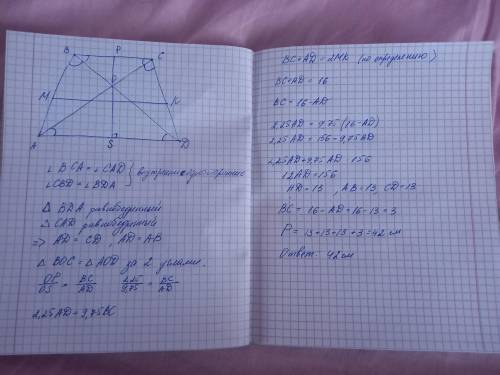 B P C
O
M K
A S D
∠ BCA = ∠ CAD
∠ CBD = ∠ BDA } внутрішні
△ BDA рівнобедренный
△ CAD рівнобедренный
⇒ AD = CD, AD = AB
△ BOC = △ AOD за 2 углами.
OP/OS = BC/AD 2,25/9,75 = BC/AD
2,25AD = 9,75BC
BC + AD = 2MK (по определению)
BC + AD = 16
BC = 16 - AD
2,25AD = 9,75 (16 - AD)
2,25AD = 156 - 9,75AD
2,25AD + 9,75AD 156
12AD = 156
AD = 13, AB = 13 CD = 13
BC = 16 - AD = 16 - 13 = 3
P = 13 + 13 + 13 + 3 = 42 см
Ответ: 42 см